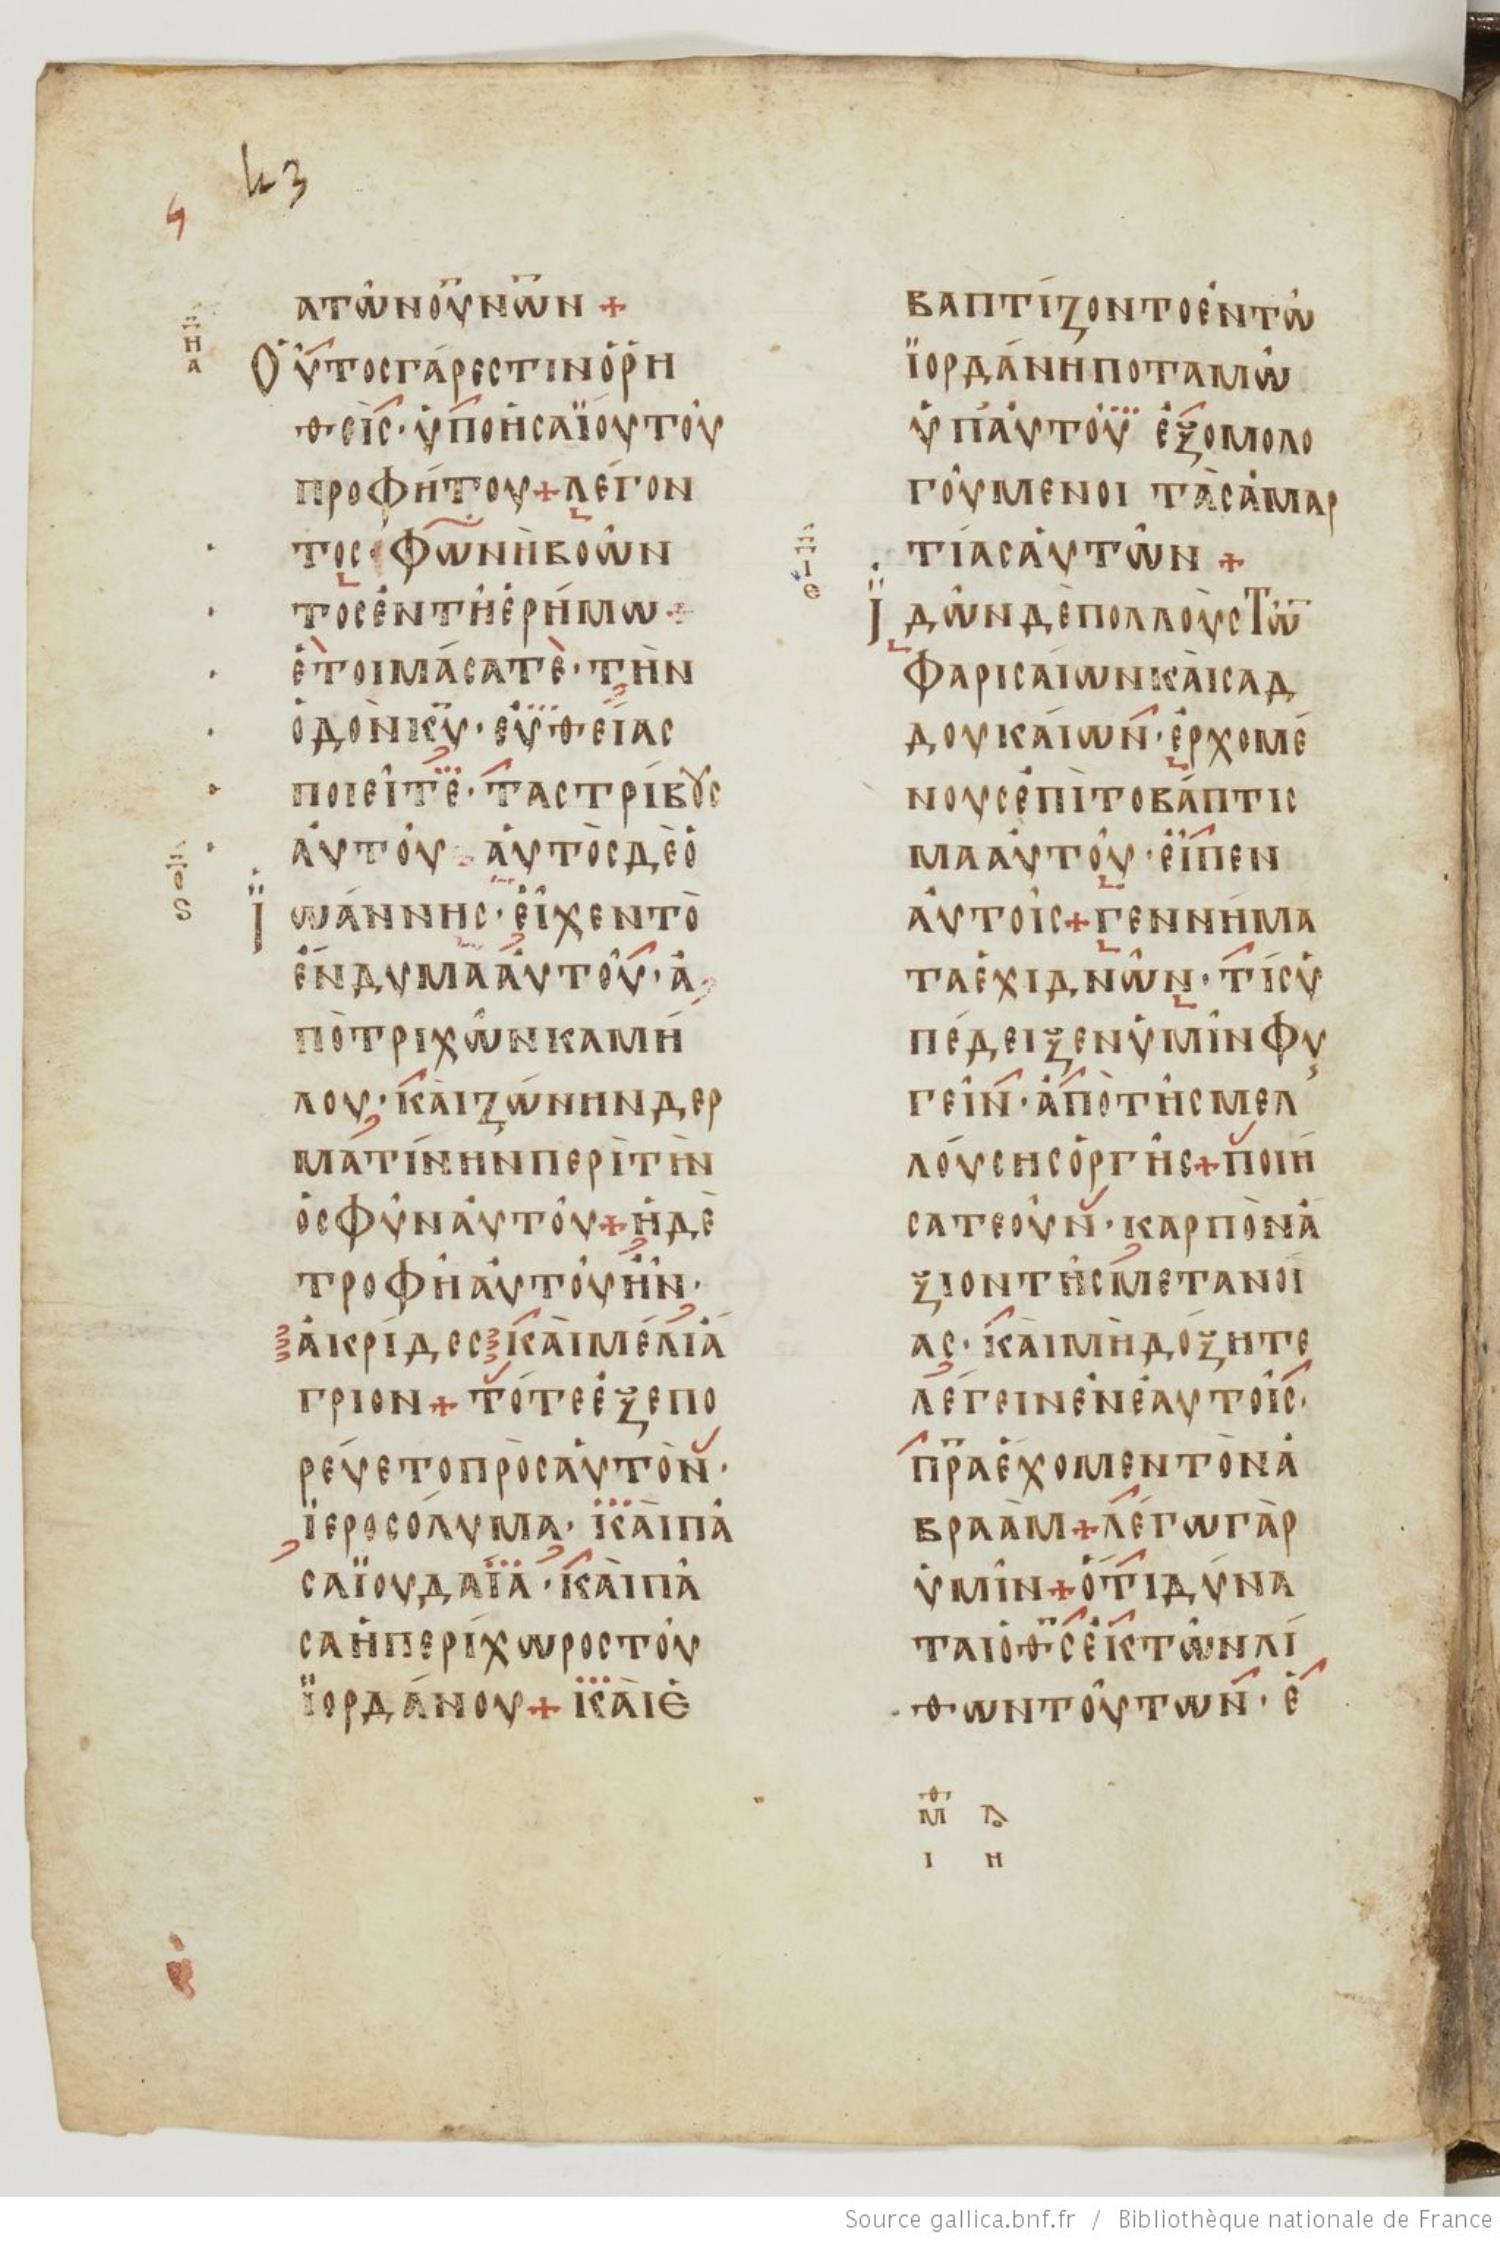 43
ϥ
ΑΤῶΝΟΥΝΩΝ +
ΗΑ
ΟΥΤΟΣΓΑΡΕΣΤΙΝΟΡΗ
ΘΕΙΣ·ΥΠΟΗΣΑΪΟΥΤΟΥ
ΠΡΟΦΗΤΟΥ+ΛΕΓΟΝ
ΤΟΣ·ΦΩΝΗΒΟΩΝ
ΤΟΣΕΝΤΗΕΡΗΜΩ+
ΕΤΟΙΜΑΣΑΤΕ·ΤΗΝ
ΟΔΟΝΚΥ·ΕΥΘΕΙΑΣ
ΠΟΙΕΙΤΕ·ΤΑΣΤΡΙΒΟΥΣ
ΑΥΤΟΥ ΑΥΤΟΣΔΕΟ
ΪΩΑΝΝΗΣ·ΕΙΧΕΝΤΟ
ΕΝΔΥΜΑΑΥΤΟΥ·Α
ΠΟΤΡΙΧΩΝΚΑΜΗ
ΛΟΥ·ΚΑΙΖΩΝΗΝΔΕΡ
ΜΑΤΙΝΗΝΠΕΡΙΤΗΝ
ΟΣΦΥΝΑΥΤΟΥ+ΗΔΕ
ΤΡΟΦΗΑΥΤΟΥΗΝ·
ΑΚΡΙΔΕΣΚΑΙΜΕΛΙΑ
ΓΡΙΟΝ+ΤΟΤΕΕΞΕΠΟ
ΡΕΥΕΤΟΠΡΟΣΑΥΤΟΝ·
ΪΕΡΟΣΟΛΥΜΑ·ΚΑΙΠΑ
ΣΑΪΟΥΔΑΙΑ·ΚΑΙΠΑ
ΣΑΗΠΕΡΙΧΩΡΟΣΤΟΥ
ΪΟΡΔΑΝΟΥ+ΚΑΙΕ
ΒΑΠΤΙΖΟΝΤΟΕΝΤΩ
ΪΟΡΔΑΝΗΠΟΤΑΜΩ
ΥΠΑΥΤΟΥ ΕΞΟΜΟΛΟ
ΓΟΥΜΕΝΟΙ ΤΑΣΑΜΑΡ
ΤΙΑΣΑΥΤΩΝ +
ΪΔΩΝΔΕΠΟΛΛΟΥΣΤΩ
ΦΑΡΙΣΑΙΩΝΚΑΙΣΑΔ
ΔΟΥΚΑΙΩΝ·ΕΡΧΟΜΕ
ΝΟΥΣΕΠΙΤΟΒΑΠΤΙΣ
ΜΑΑΥΤΟΥ·ΕΙΠΕΝ
ΑΥΤΟΙΣ+ΓΕΝΝΗΜΑ
ΤΑΕΧΙΔΝΩΝ·ΤΙΣΥ
ΠΕΔΕΙΞΕΝΥΜΙΝΦΥ
ΓΕΙΝ·ΑΠΟΤΗΣΜΕΛ
ΛΟΥΣΗΣΟΡΓΗΣ+ΠΟΙΗ
ΣΑΤΕΟΥΝ·ΚΑΡΠΟΝΑ
ΞΙΟΝΤΗΣΜΕΤΑΝΟΙ
ΑΣ·ΚΑΙΜΗΔΟΞΗΤΕ
ΛΕΓΕΙΝΕΝΕΑΥΤΟΙΣ·
ΠΡΑΕΧΟΜΕΝΤΟΝΑ
ΒΡΑΑΜ+ΛΕΓΩΓΑΡ
ΥΜΙΝ+ΟΤΙΔΥΝΑ
ΤΑΙΟΘΣΕΚΤΩΝΛΙ
ΘΩΝΤΟΥΤΩΝ·Ε
Ι Η
Source gallica.bnf.fr / Bibliothèque nationale de France